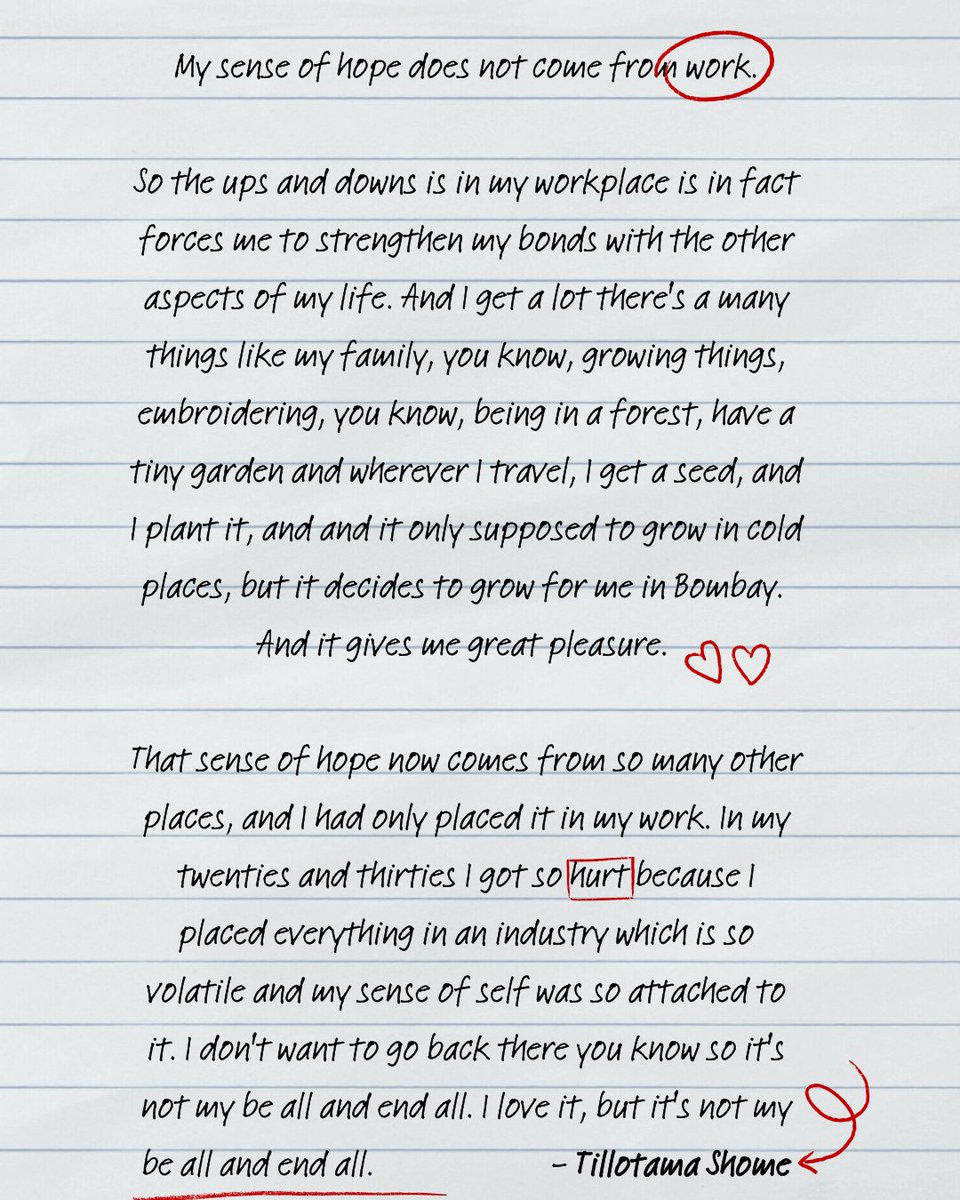 My sense of hope does not come from work.
So the ups and downs is in my workplace is in fact
forces me to strengthen my bonds with the other
aspects of my life. And I get a lot there's a many
things like my family, you know, growing things,
embroidering, you know, being in a forest, have a
tiny garden and wherever I travel, I get a seed, and
I plant it, and and it only supposed to grow in cold
places, but it decides to grow for me in Bombay.
And it gives me great pleasure.
That sense of hope now comes from so many other
places, and I had only placed it in my work. In my
twenties and thirties I got so hurt because I
placed everything in an industry which is so
volatile and my sense of self was so attached to
it. I don't want to go back there you know so it's
not my be all and end all. I love it, but it's not my
be all and end all. – Tillotama Shome